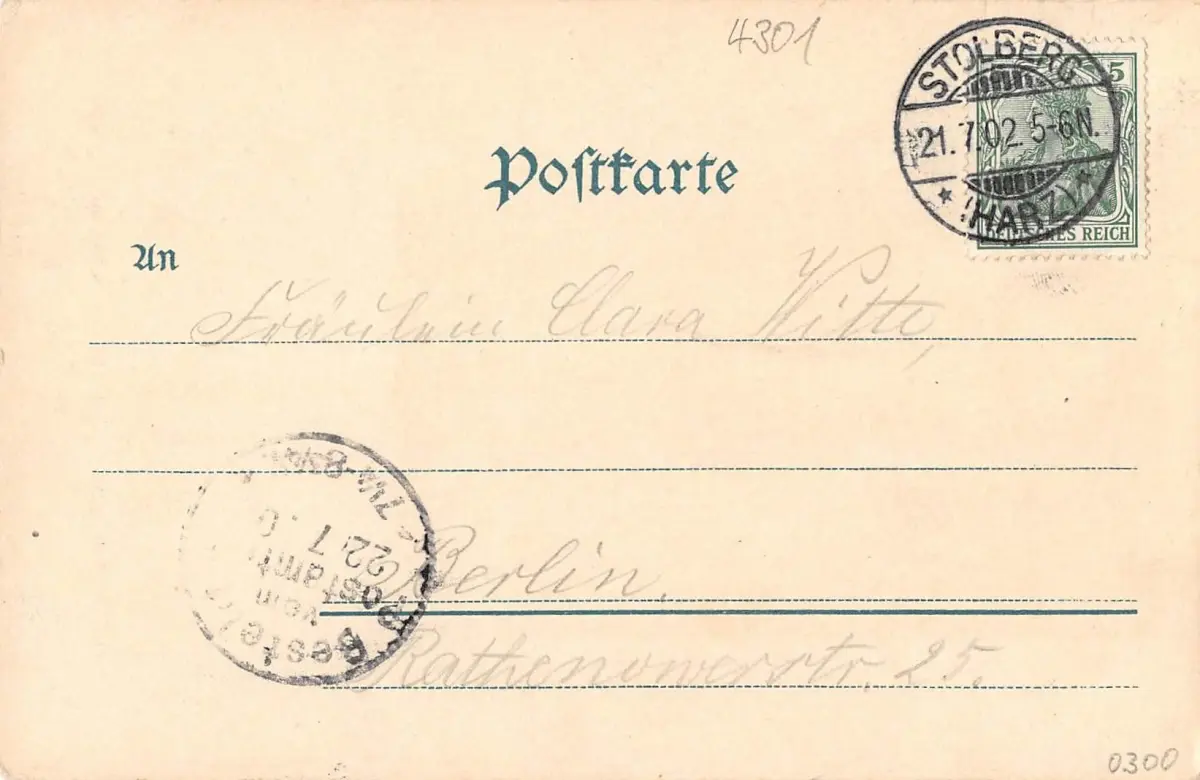 4301
STOLBERG
21.7.02. 5-6N.
* (HARZ) *
5
DEUTSCHES REICH
Postkarte
An
Fräulein Clara Witte,
Berlin.
Rathenowerstr. 25.
Bestellt
vom
Postamt
22 7 0
0300